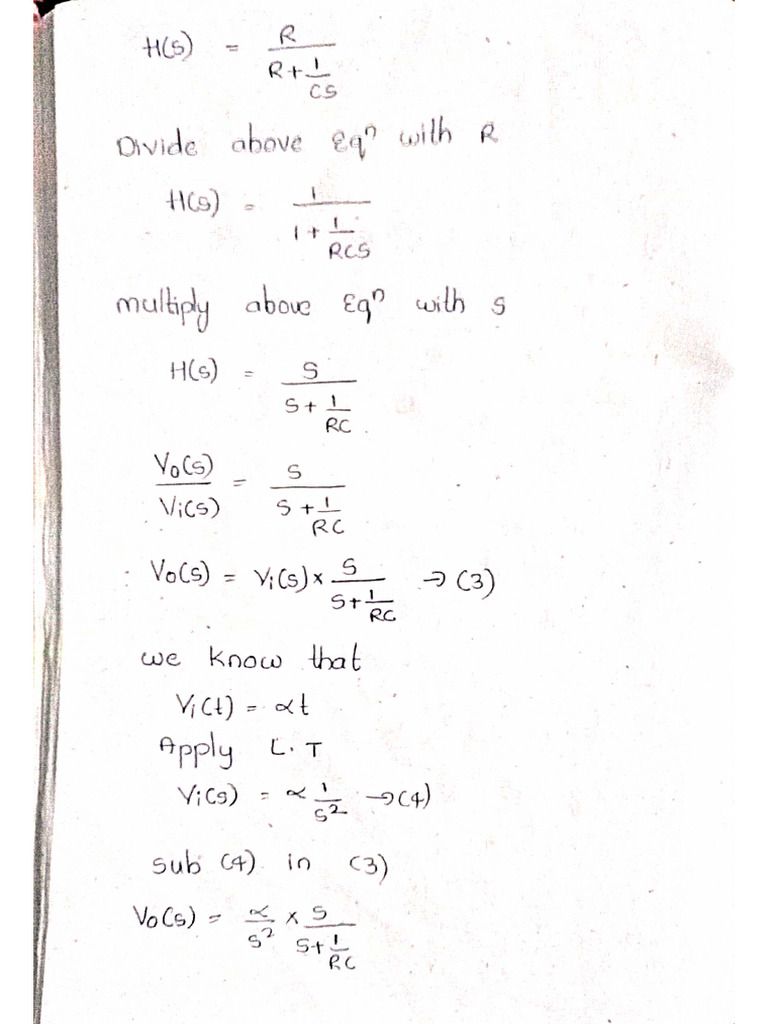 H(s) = R / (R + 1/CS)
Divide above Eqⁿ with R
H(s) = 1 / (1 + 1/RCS)
multiply above Eqⁿ with s
H(s) = S / (S + 1/RC)
Vo(s)/Vi(s) = S / (S + 1/RC)
Vo(s) = Vi(s) × S / (S + 1/RC) → (3)
we know that
Vi(t) = αt
Apply L.T
Vi(s) = α 1/s² → (4)
sub (4) in (3)
Vo(s) = α/s² × S / (S + 1/RC)